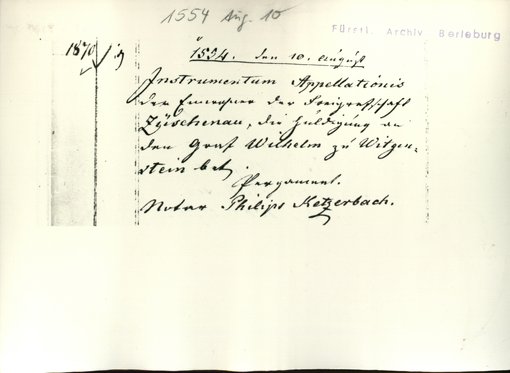 1554 Aug. 10
Fürstl. Archiv Berleburg
1870
1554. den 10. August
Instrumentum Appellationis
der Einwohner der Freigrafschaft
Züschenau, die Huldigung an
den Graf Wilhelm zu Witgen-
stein bet.
Pergament.
Notar Philips Ketzerbach.